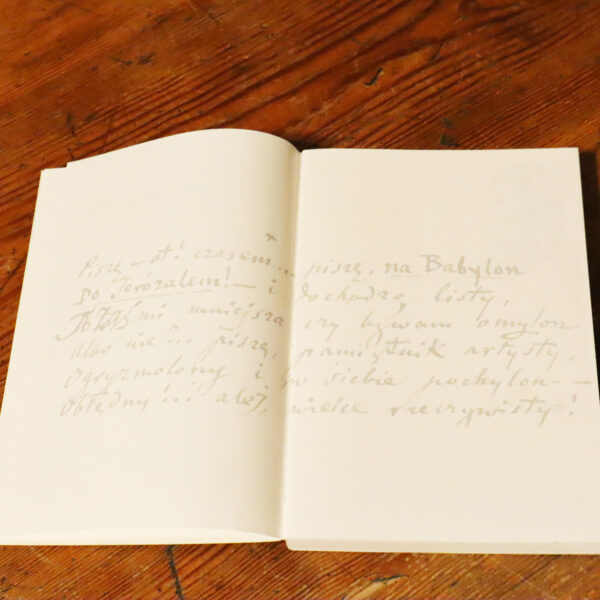 Piszę — ot! czasem... piszę, na Babylon
Do Jerózalem! — i dochodzą listy,
To zaś mi mniejsza czy bywam omylon
albo nie?.. piszę, pamiętnik artysty,
Ogryzmolony i w siebie pochylon —
Obłędny!.. ależ, wielce rzeczywisty!